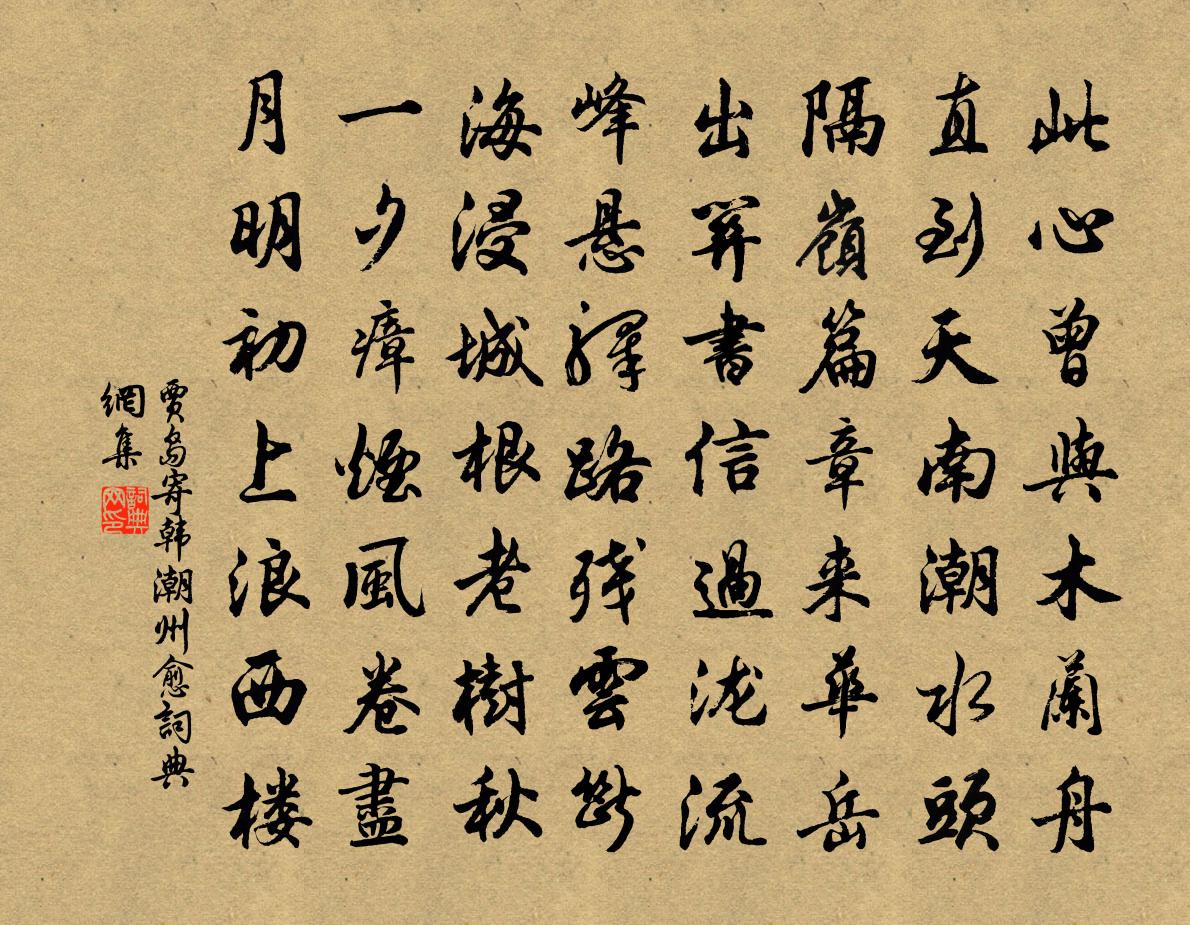 此心曾與木蘭舟
直到天南潮水頭
隔嶺篇章来華岳
出關書信過泷流
峰悬驛路残雲斷
海浸城根老樹秋
一夕瘴煙風卷盡
月明初上浪西楼
贾岛寄韩潮州愈詞典
網集
詞典网印